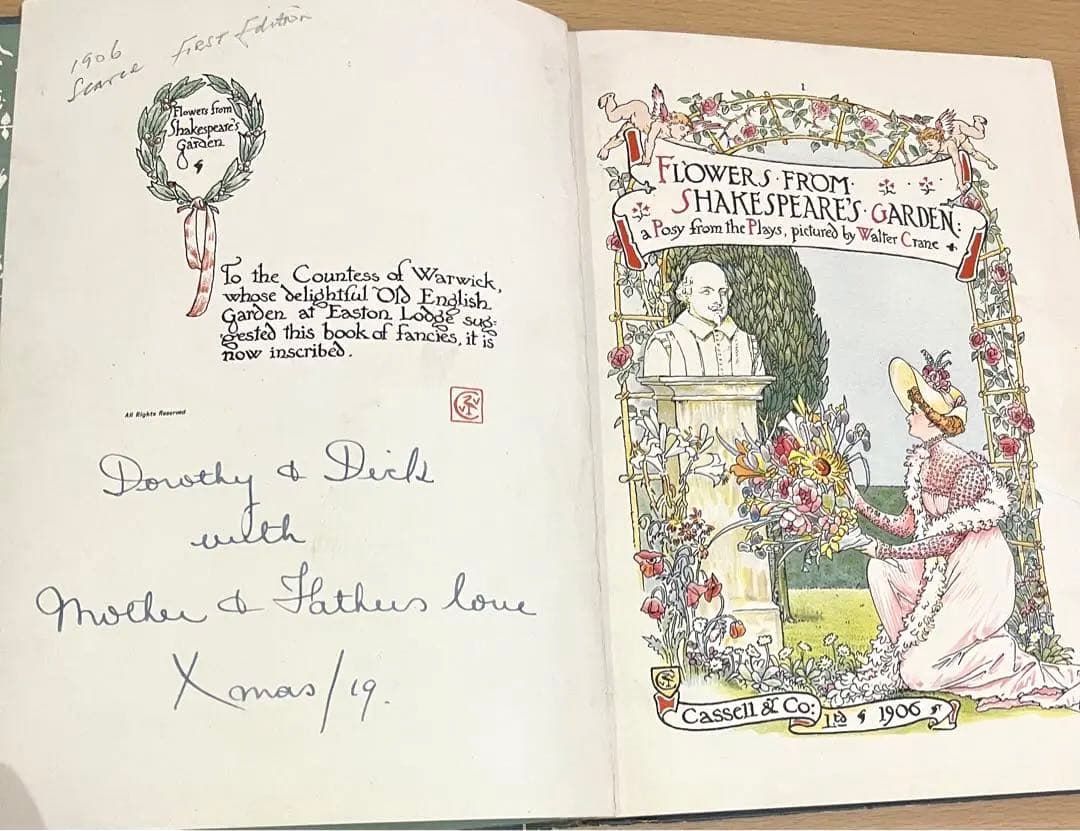 1906
Scarce First Edition
Flowers from
Shakespeare's
Garden
To the Countess of Warwick,
whose delightful Old English
Garden at Easton Lodge sug-
gested this book of fancies, it is
now inscribed.
All Rights Reserved
Dorothy & Dick
with
Mother & Fathers love
Xmas/19.
1
FLOWERS · FROM ·
SHAKESPEARE'S · GARDEN:
a Posy from the Plays, pictured by Walter Crane
CASSELL & CO:
LTD 1906